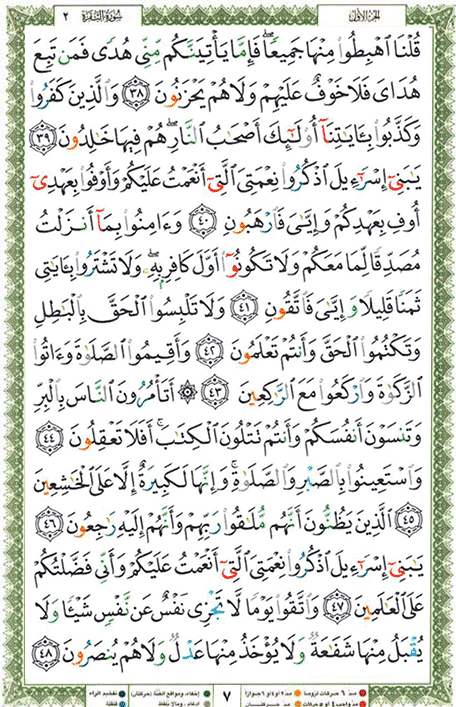 الجزء الأول
سُورَةُ البَقَرَةِ ٢
قُلْنَا ٱهْبِطُواْ مِنْهَا جَمِيعًا ۖ فَإِمَّا يَأْتِيَنَّكُم مِّنِّى هُدًى فَمَن تَبِعَ
هُدَاىَ فَلَا خَوْفٌ عَلَيْهِمْ وَلَا هُمْ يَحْزَنُونَ ٣٨ وَٱلَّذِينَ كَفَرُواْ
وَكَذَّبُواْ بِـَٔايَـٰتِنَآ أُوْلَـٰٓئِكَ أَصْحَـٰبُ ٱلنَّارِ ۖ هُمْ فِيهَا خَـٰلِدُونَ ٣٩
يَـٰبَنِىٓ إِسْرَٰٓءِيلَ ٱذْكُرُواْ نِعْمَتِىَ ٱلَّتِىٓ أَنْعَمْتُ عَلَيْكُمْ وَأَوْفُواْ بِعَهْدِىٓ
أُوفِ بِعَهْدِكُمْ وَإِيَّـٰىَ فَٱرْهَبُونِ ٤٠ وَءَامِنُواْ بِمَآ أَنزَلْتُ
مُصَدِّقًا لِّمَا مَعَكُمْ وَلَا تَكُونُوٓاْ أَوَّلَ كَافِرٍۭ بِهِۦ ۖ وَلَا تَشْتَرُواْ بِـَٔايَـٰتِى
ثَمَنًا قَلِيلًا وَإِيَّـٰىَ فَٱتَّقُونِ ٤١ وَلَا تَلْبِسُواْ ٱلْحَقَّ بِٱلْبَـٰطِلِ
وَتَكْتُمُواْ ٱلْحَقَّ وَأَنتُمْ تَعْلَمُونَ ٤٢ وَأَقِيمُواْ ٱلصَّلَوٰةَ وَءَاتُواْ
ٱلزَّكَوٰةَ وَٱرْكَعُواْ مَعَ ٱلرَّٰكِعِينَ ٤٣ ۞ أَتَأْمُرُونَ ٱلنَّاسَ بِٱلْبِرِّ
وَتَنسَوْنَ أَنفُسَكُمْ وَأَنتُمْ تَتْلُونَ ٱلْكِتَـٰبَ ۚ أَفَلَا تَعْقِلُونَ ٤٤
وَٱسْتَعِينُواْ بِٱلصَّبْرِ وَٱلصَّلَوٰةِ ۚ وَإِنَّهَا لَكَبِيرَةٌ إِلَّا عَلَى ٱلْخَـٰشِعِينَ
٤٥ ٱلَّذِينَ يَظُنُّونَ أَنَّهُم مُّلَـٰقُواْ رَبِّهِمْ وَأَنَّهُمْ إِلَيْهِ رَٰجِعُونَ ٤٦
يَـٰبَنِىٓ إِسْرَٰٓءِيلَ ٱذْكُرُواْ نِعْمَتِىَ ٱلَّتِىٓ أَنْعَمْتُ عَلَيْكُمْ وَأَنِّى فَضَّلْتُكُمْ
عَلَى ٱلْعَـٰلَمِينَ ٤٧ وَٱتَّقُواْ يَوْمًا لَّا تَجْزِى نَفْسٌ عَن نَّفْسٍ شَيْـًٔا وَلَا
يُقْبَلُ مِنْهَا شَفَـٰعَةٌ وَلَا يُؤْخَذُ مِنْهَا عَدْلٌ وَلَا هُمْ يُنصَرُونَ ٤٨
مدّ ٦ حركات لزوماً مدّ ٢ او ٤ او ٦ جوازاً
مدّ واجب ٤ او ٥ حركات مدّ حركتان
٧
إخفاء، ومواقع الغُنَّة (حركتان) تفخيم الراء
ادغام، ومالا يلفظ قلقلة